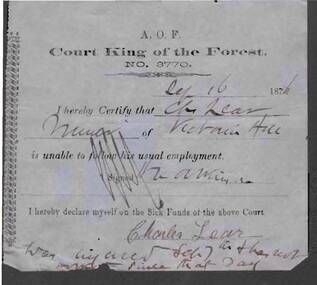 A. O. F.
Court King of the Forest.
NO. 3770.
Sep 16 187
I hereby Certify that Chs Lear
Miner of Victoria Hill
is unable to follow his usual employment.
Signed
I hereby declare myself on the Sick Funds of the above Court
Charles Lear
was injured Sep 7th & has not
since that day